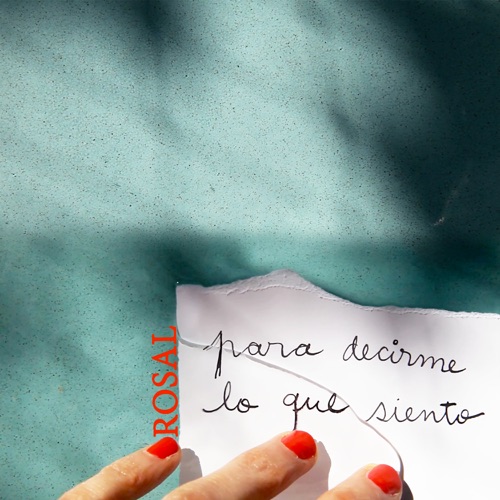 ROSAL
para decirme
lo que siento